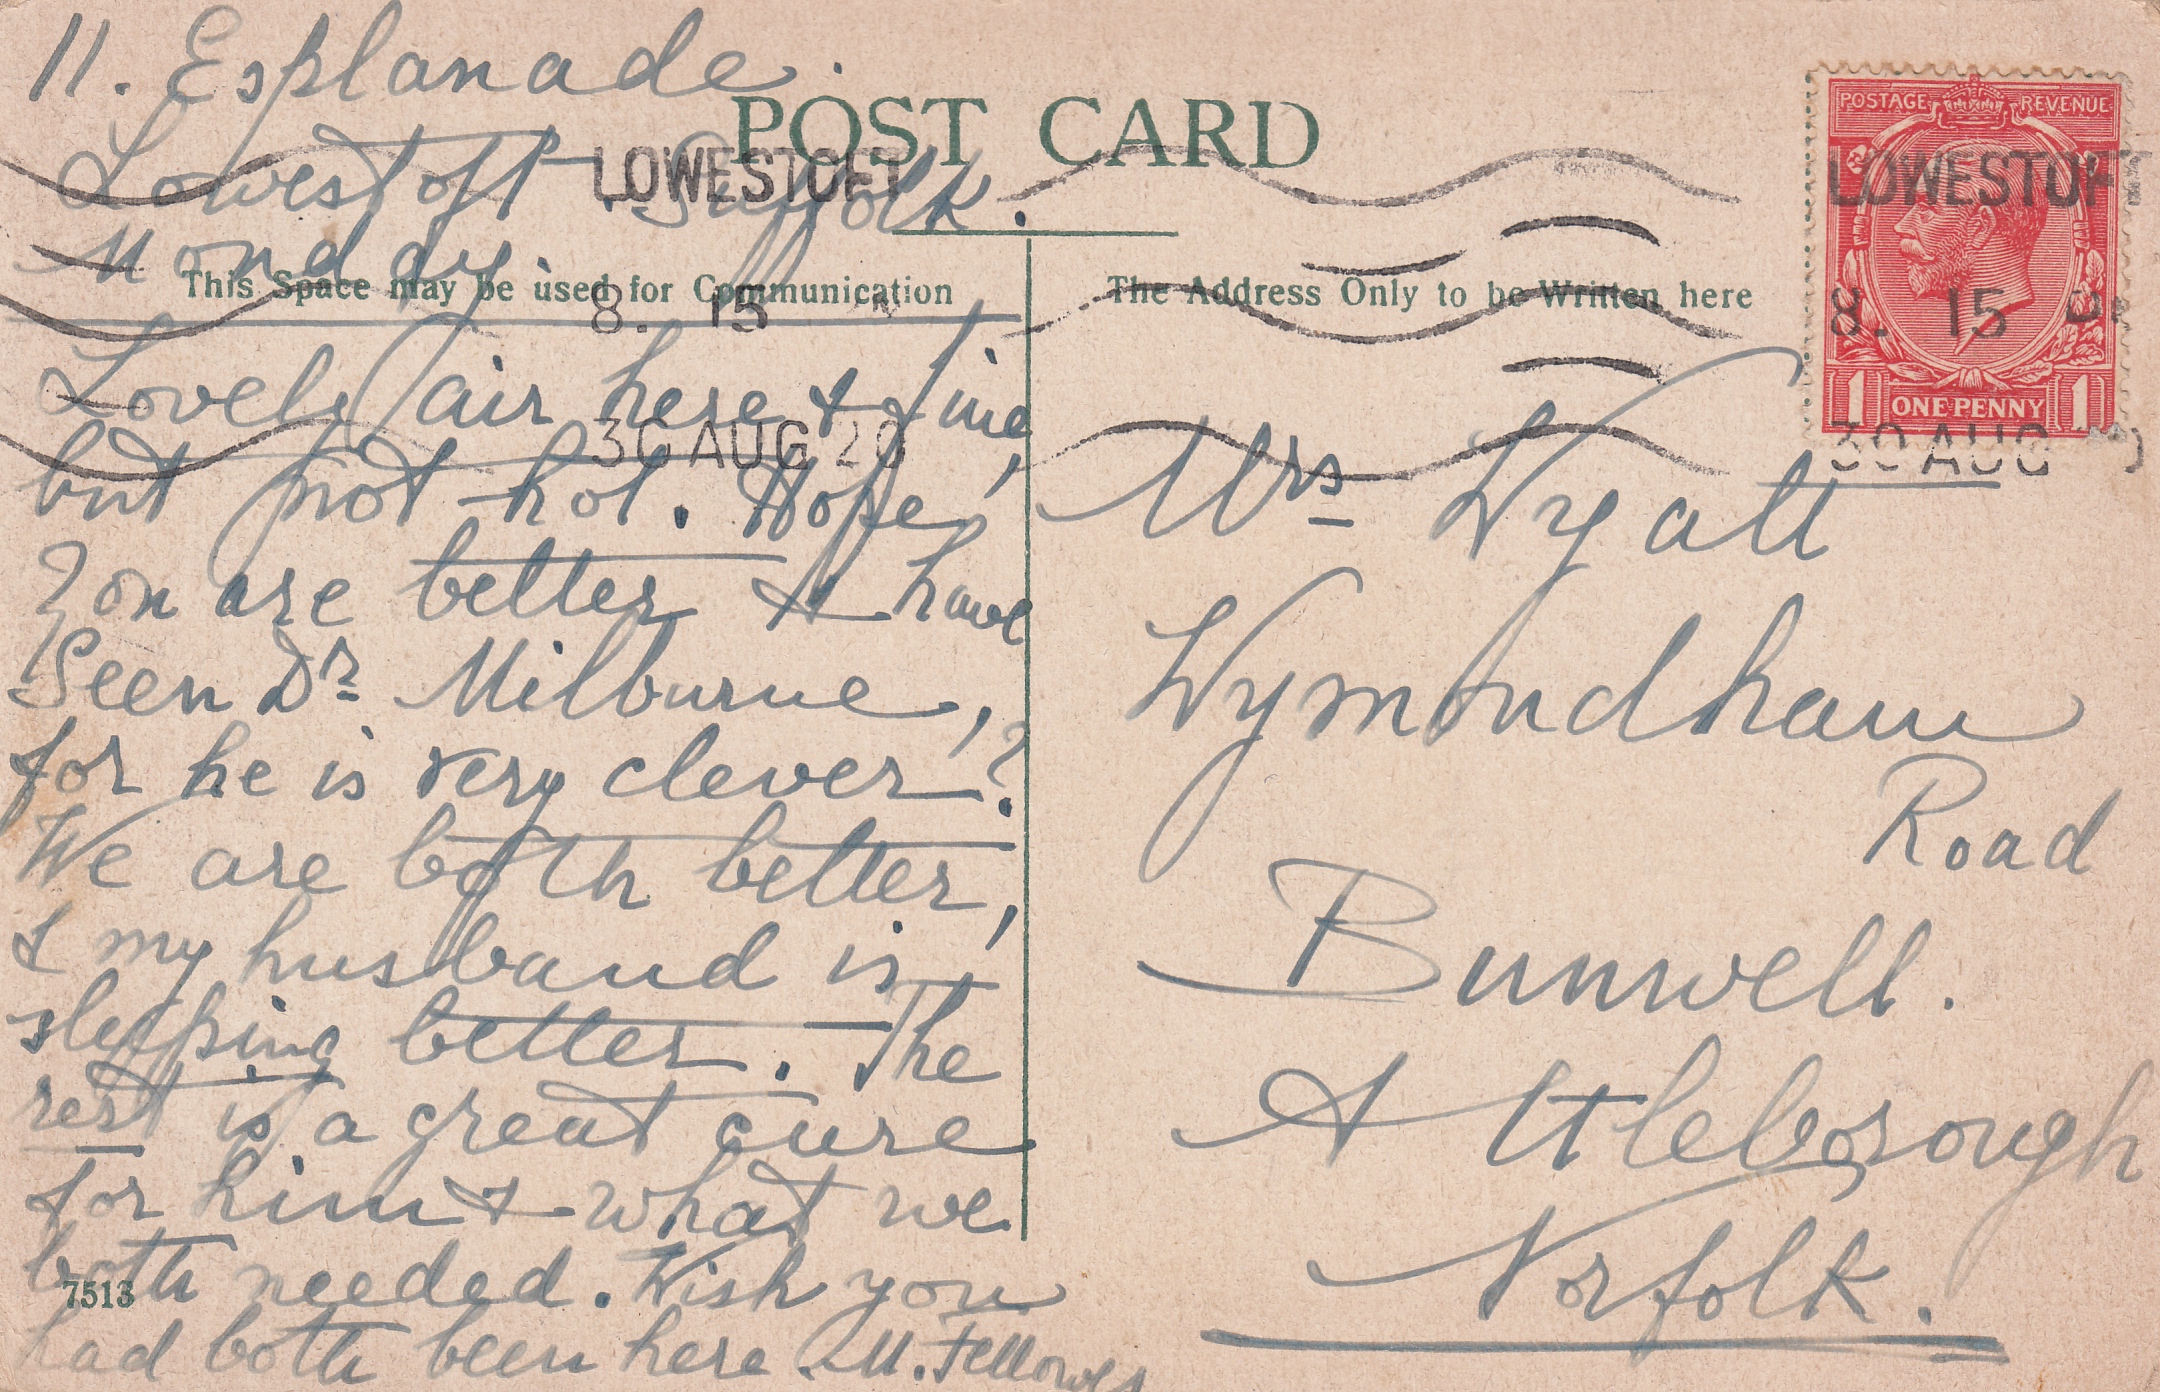 11. Esplanade.
Lowestoft. Suffolk.
Monday.
POST CARD
This Space may be used for Communication
The Address Only to be Written here
LOWESTOFT
8. 15
30 AUG 20
POSTAGE REVENUE
LOWESTOFT
8. 15 P
1 ONE PENNY 1
30 AUG
Lovely air here & fine,
but not hot. Hope
you are better & have
Seen Dr Milburne,
for he is very clever?
We are both better,
& my husband is
sleeping better. The
rest is a great cure
for him & what we
both needed. Wish you
had both been here. M. Fellowes
7513
Mrs Wyatt
Wymondham
Road
Bunwell.
Attleborough
Norfolk.